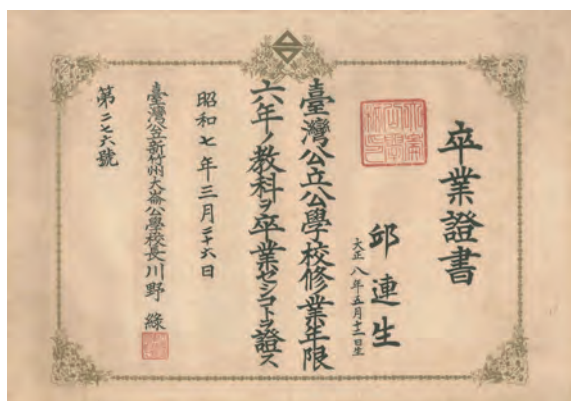 卒業證書
邱連生
大正八年五月十二日生
臺灣公立公學校修業年限
六年ノ教科ヲ卒業セシコトヲ證ス
昭和七年三月二十六日
臺灣公立新竹州大崙公學校長川野 緑
第二七六號